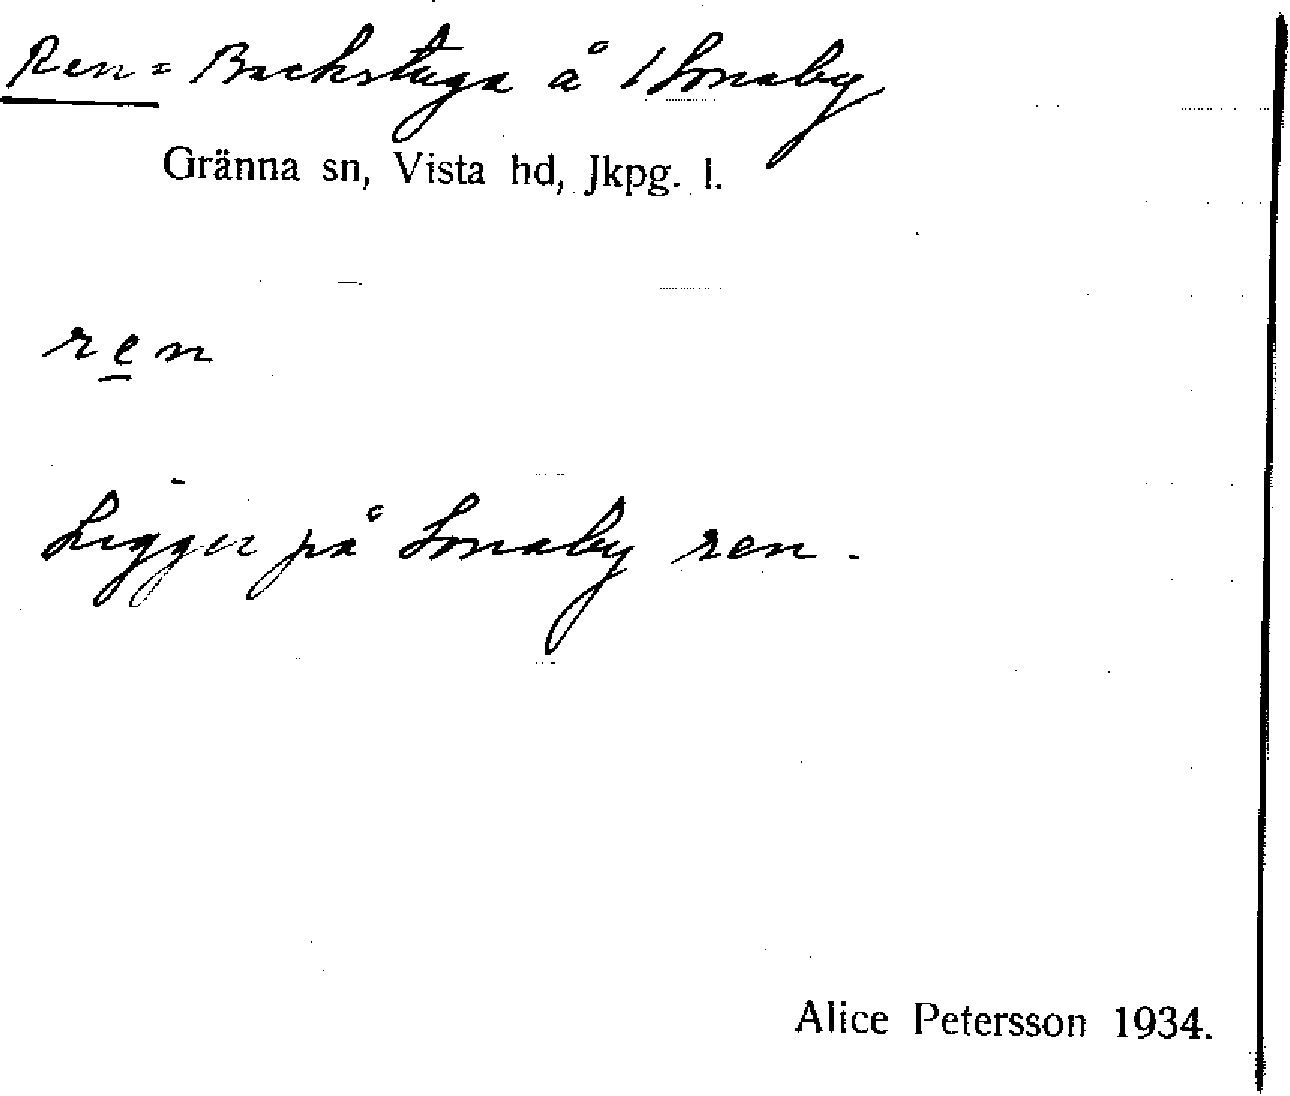 Ren = Backstuga å 1 Lonaby
Gränna sn, Vista hd, Jkpg. l.
ren
Ligger på Lonaby ren.
Alice Petersson 1934.